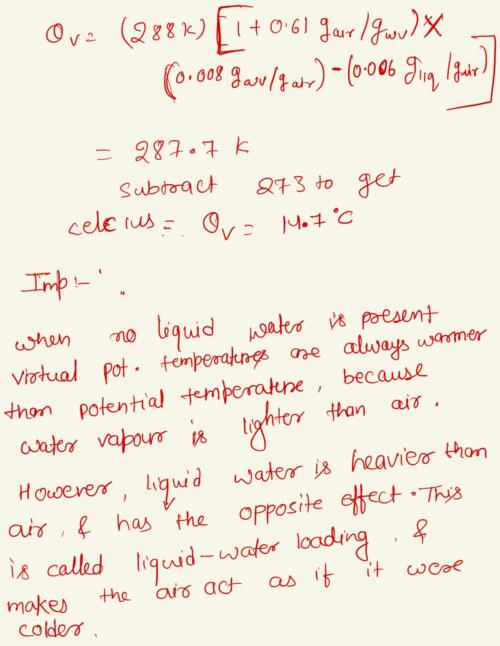 θv = (288 K) [1 + 0.61 gair/gwv) ×
(0.008 gwv/gair) - (0.006 gliq/gair)]
= 287.7 K
subtract 273 to get
celcius = θv = 14.7 °C
Imp :-
when no liquid water is present
virtual pot. temperatures are always warmer
than potential temperature, because
water vapour is lighter than air.
However, liquid water is heavier than
air, & has the opposite effect. This
is called liquid-water loading, &
makes the air act as if it were
colder.